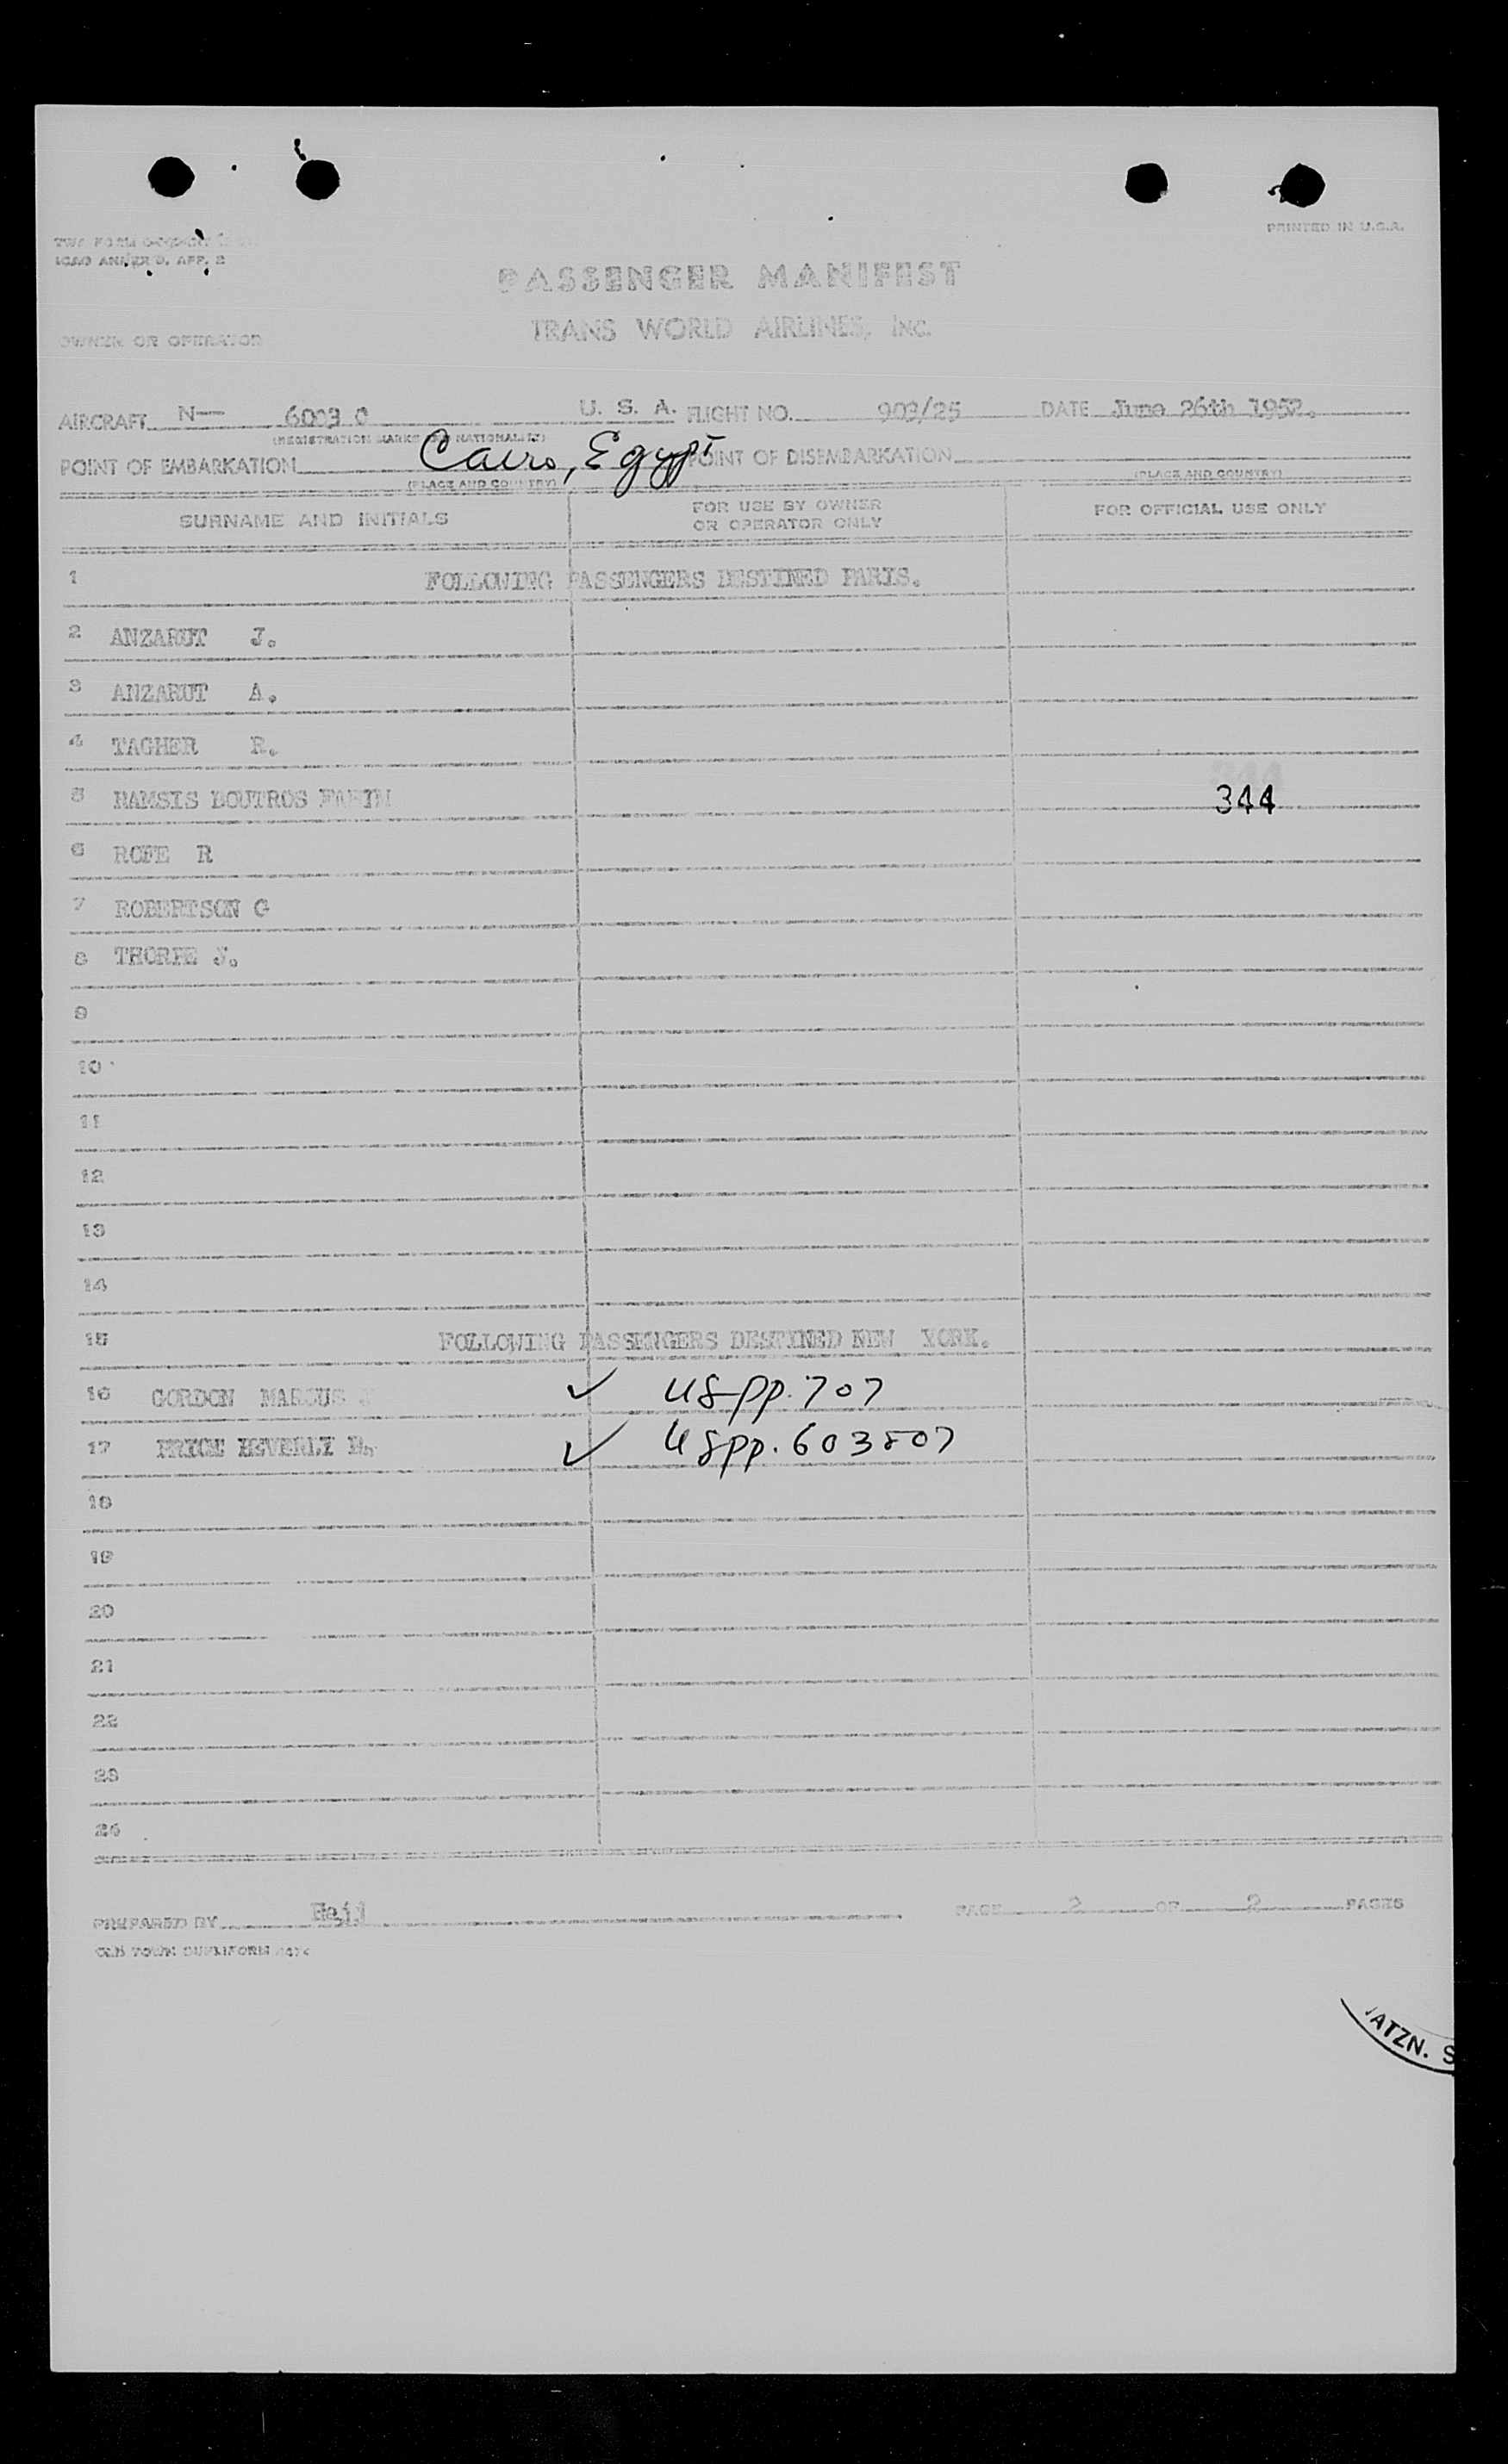 PRINTED IN U.S.A.
ICAO ANNEX 9, APP. 2
PASSENGER MANIFEST
TRANS WORLD AIRLINES, INC.
OWNER OR OPERATOR
AIRCRAFT N— 6003 C U. S. A. FLIGHT NO. 903/25 DATE June 26th 1952.
(REGISTRATION MARKS AND NATIONALITY)
POINT OF EMBARKATION Cairo, Egypt POINT OF DISEMBARKATION
(PLACE AND COUNTRY) (PLACE AND COUNTRY)
SURNAME AND INITIALS FOR USE BY OWNER OR OPERATOR ONLY FOR OFFICIAL USE ONLY
1 FOLLOWING PASSENGERS DESTINED PARIS.
2 ANZARUT J.
3 ANZARUT A.
4 TAGHER R.
5 RAMSIS BOUTROS 344
6 ROFE R
7 ROBERTSON G
8 THORPE J.
9
10
11
12
13
14
15 FOLLOWING PASSENGERS DESTINED NEW YORK.
16 GORDON MARCUS ✓ US pp. 707
17 PRICE BEVERLY ✓ US pp. 603807
18
19
20
21
22
23
24
PREPARED BY PAGE 2 OF 2 PAGES
ATZN. S